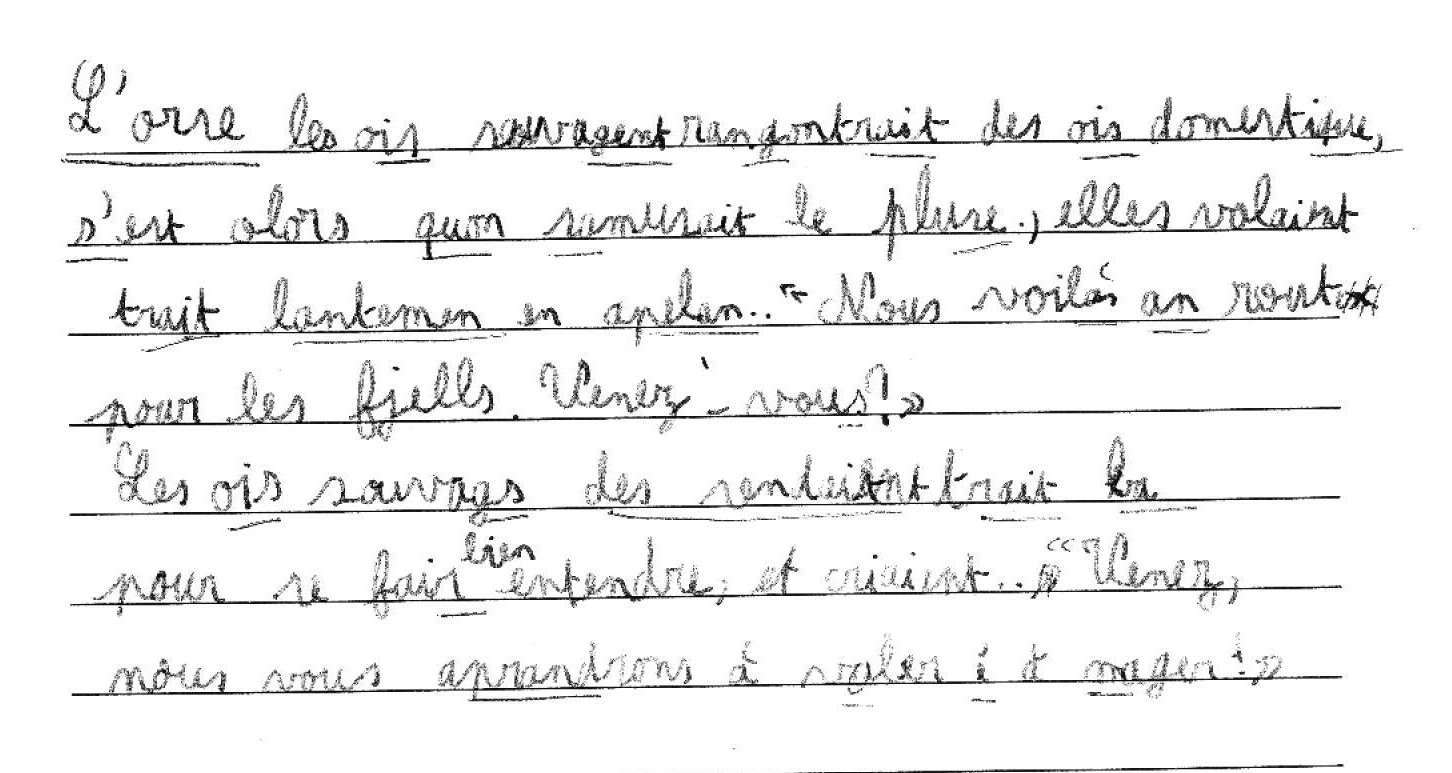 L'orse les ois sauvagent rangontrait des ois domestique,
s'est alors quon samusait le pluse., elles volaient
trait lantemen en apelan.. "Nous voilàs an rout
pour les fjells. Venez - vous? »
Les ois sauvags des sendaient trait ba
pour se fair bien entendre, et criaient.. « Venez,
nous vous aprandrons à voler i à nager! »